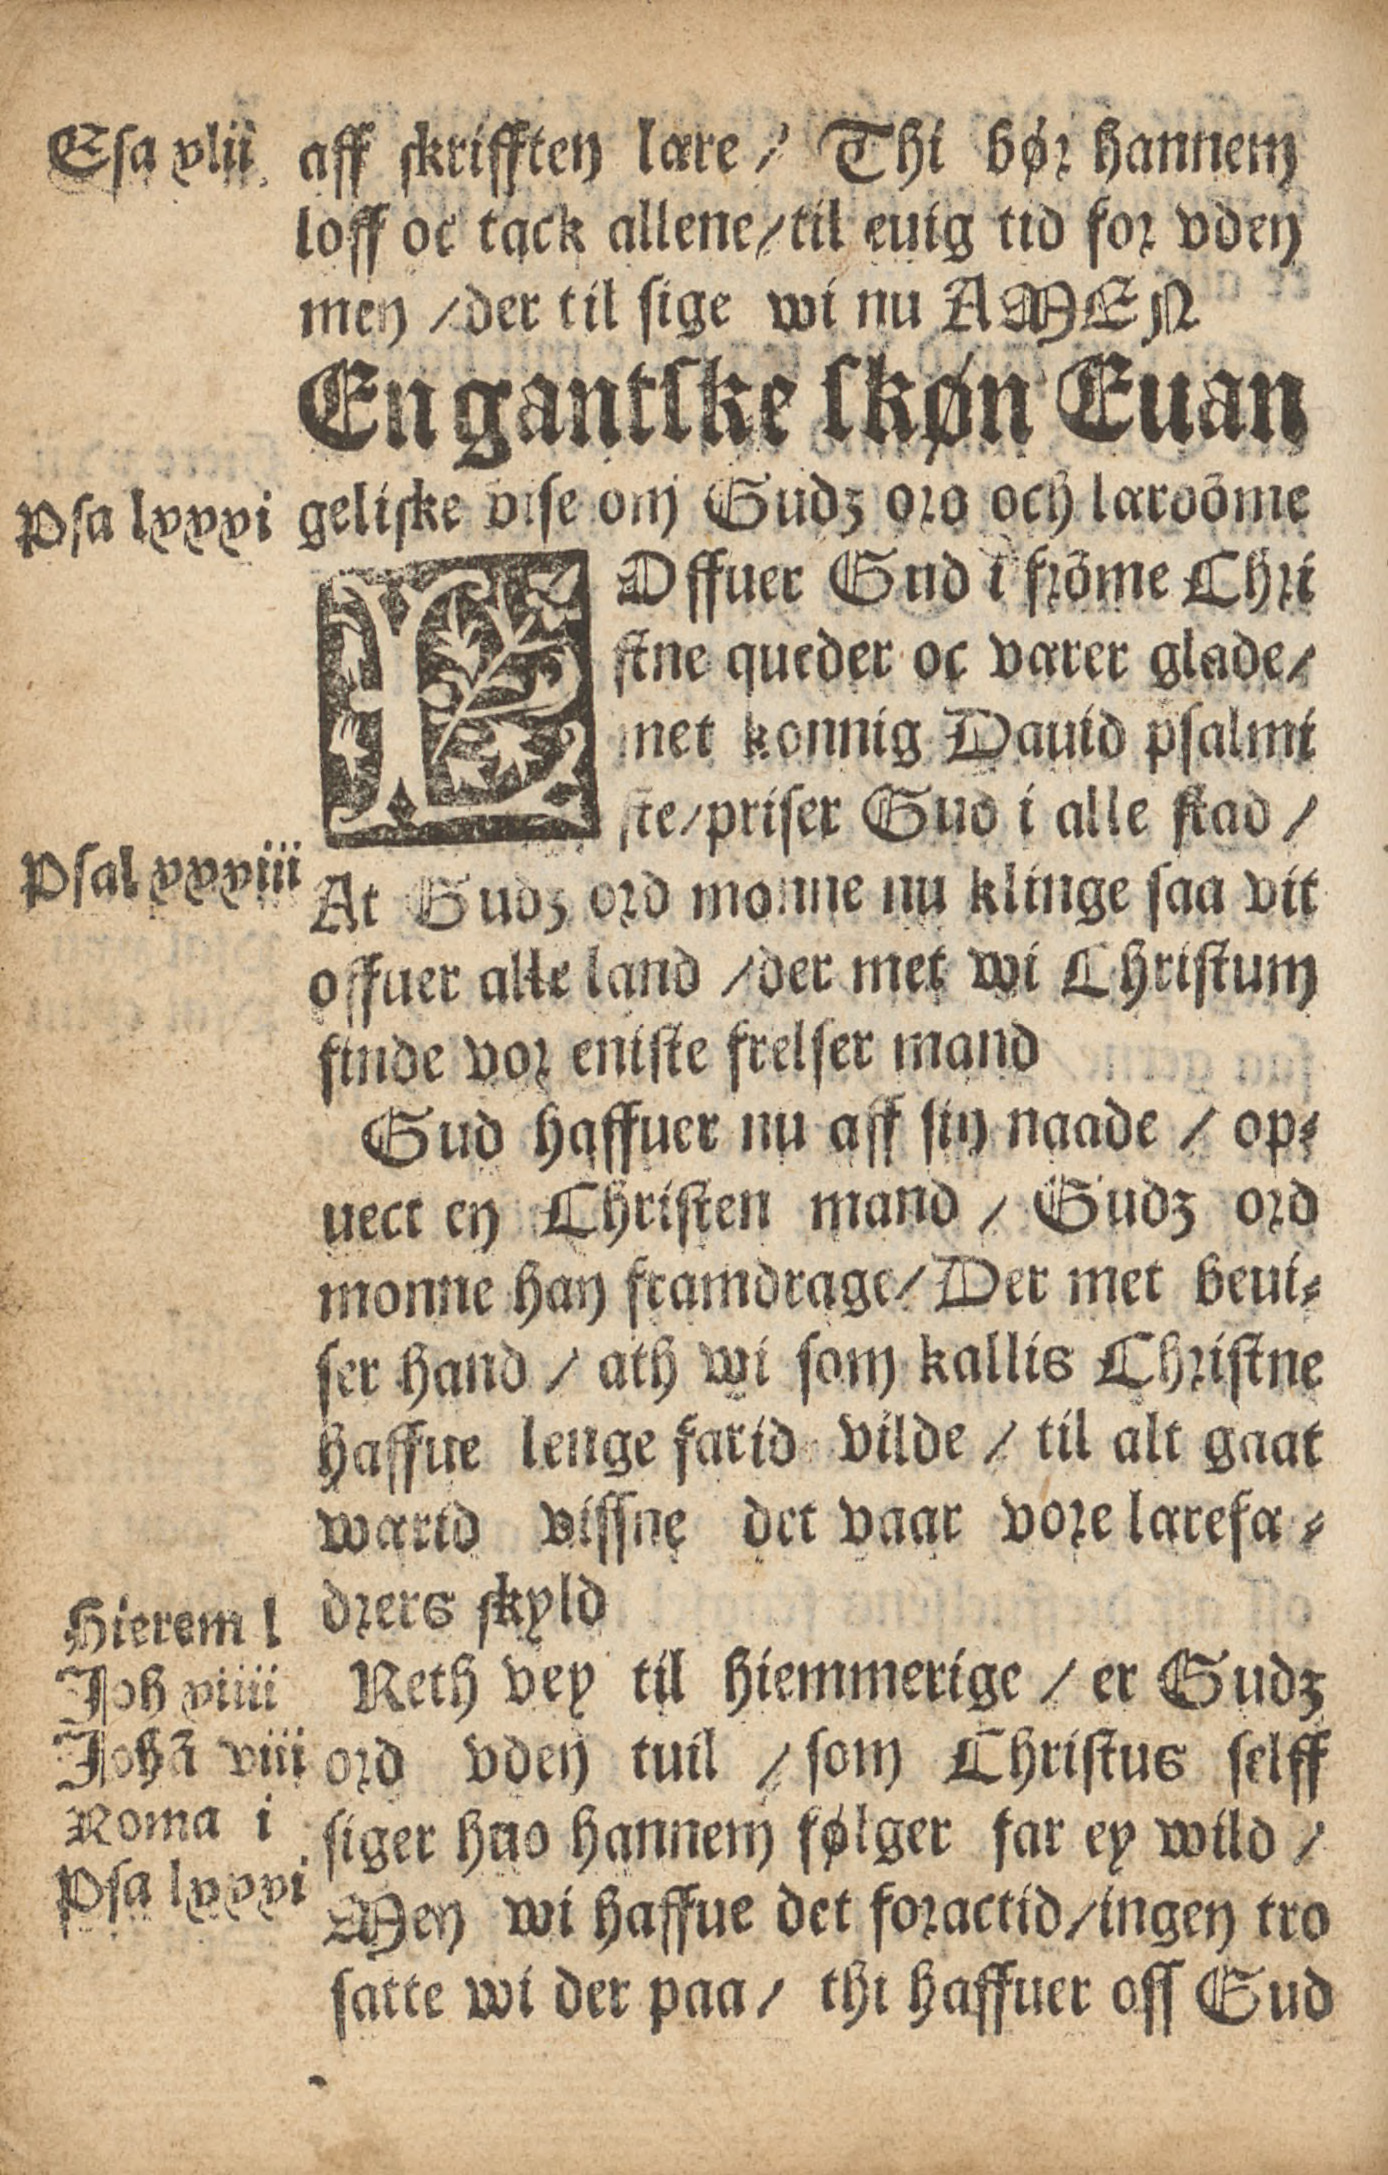 Esa xlii
aff skrifften lære / Thi bør hannem
loff oc tack allene / til euig tid for vden
men / der til sige wi nu AMEN
En gantske skøn Euan
Psa lxxxi
geliske vise om Gudz ord och lærdōme
LOffuer Gud i frōme Chri
stne queder oc værer glade /
met konnig Dauid psalmi
ste / priser Gud i alle stad /
Psal xxxiii
At Gudz ord monne nu klinge saa vit
offuer alle land / der met wi Christum
finde vor eniste frelser mand
Gud haffuer nu aff sin naade / op⸗
uect en Christen mand / Gudz ord
monne han framdrage / Der met beui⸗
ser hand / ath wi som kallis Christne
haffue lenge farid vilde / til alt gaat
wærid vissne det vaar vore lærefæ⸗
drers skyld
Hierem l
Joh xiiii
Johā viii
Roma i
Psa lxxxi
Reth vey til hiemmerige / er Gudz
ord vden tuil / som Christus selff
siger huo hannem følger far ey wild /
Men wi haffue det foractid / ingen tro
satte wi der paa / thi haffuer oss Gud